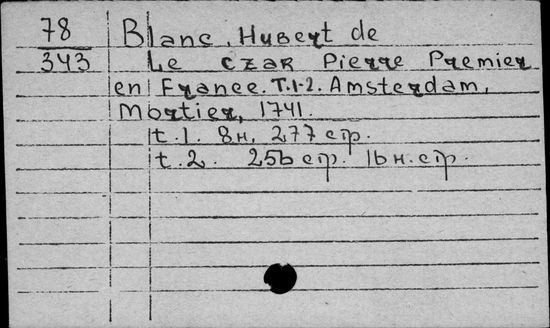 78 Blanc, Hubert de
343 Le czar Pierre Premier
en France. T.1-2. Amsterdam,
Mortier, 1741.
t.1. 8н, 277 стр.
t.2. 256 стр. 16 н. стр.